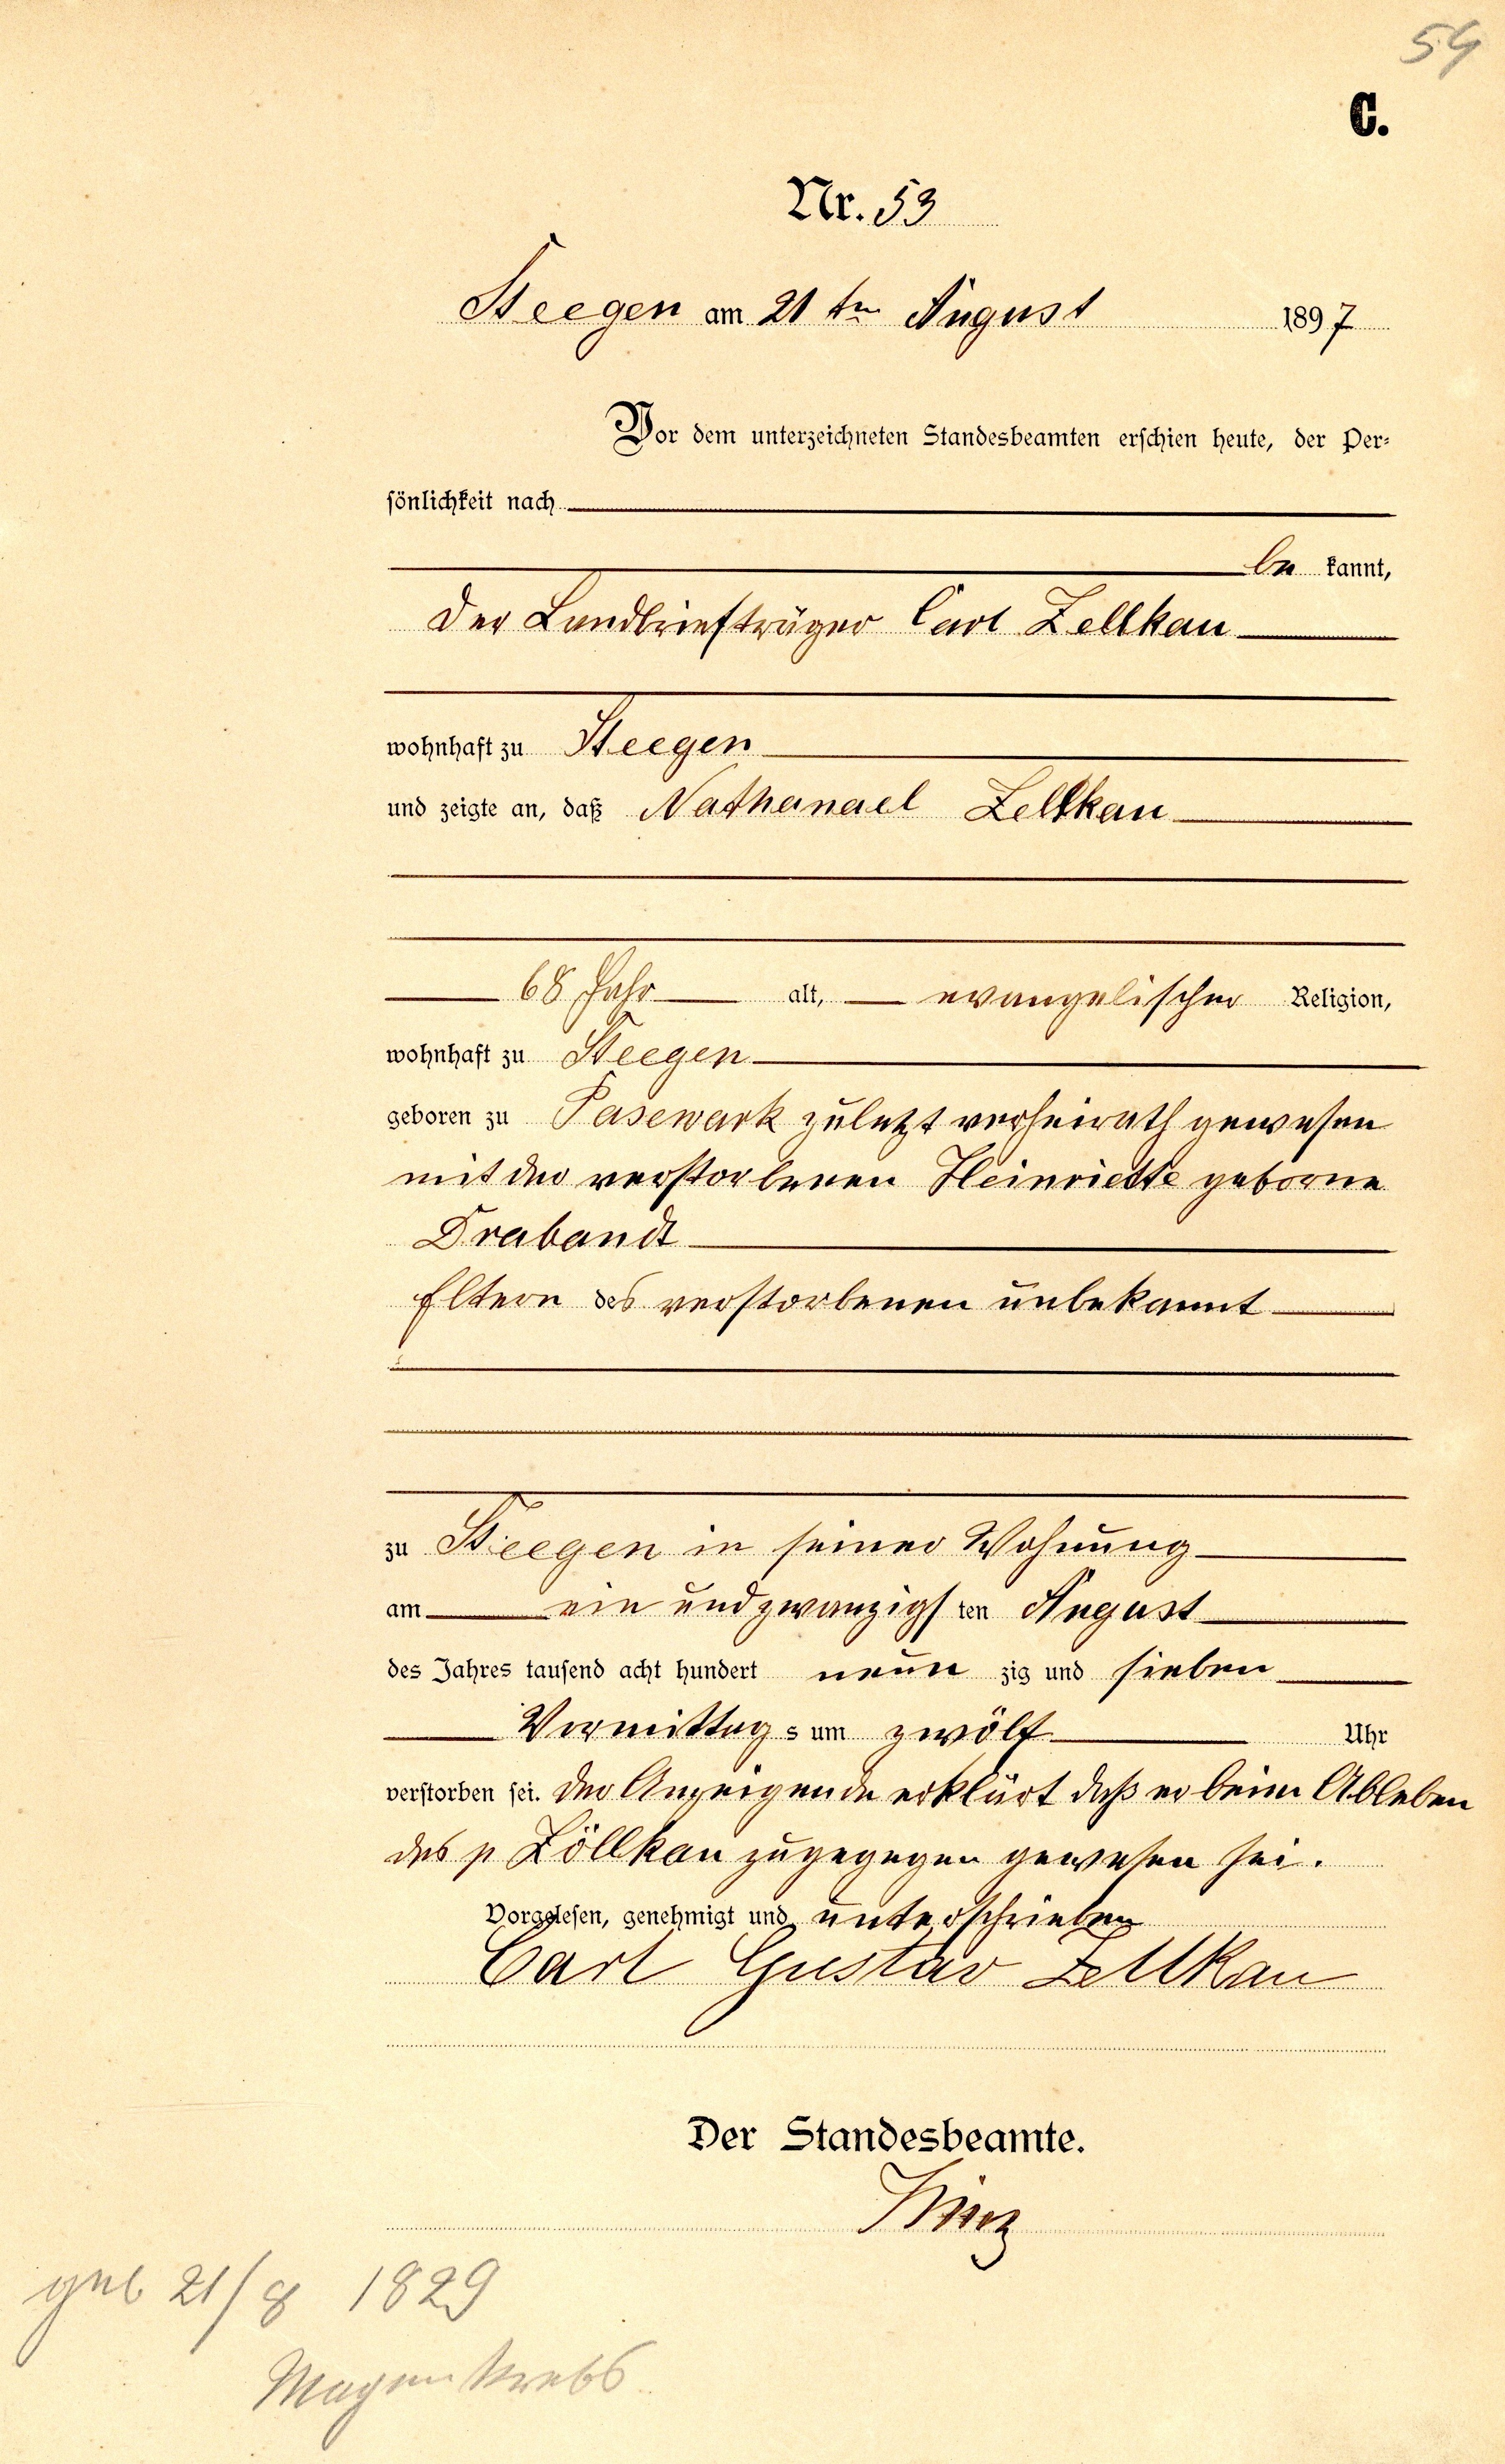 54
C.
Nr. 53
Steegen am 21 ten August 1897
Vor dem unterzeichneten Standesbeamten erschien heute, der Per-
sönlichkeit nach
be kannt,
der Landbriefträger Carl Zellkau
wohnhaft zu Steegen
und zeigte an, daß Nathanael Zellkau
68 Jahr alt, evangelischer Religion,
wohnhaft zu Steegen
geboren zu Pasewark zuletzt verheirath gewesen
mit der verstorbenen Heinriette geborne
Drabandt
Eltern des verstorbenen unbekannt
zu Steegen in seiner Wohnung
am ein und zwanzigs ten August
des Jahres tausend acht hundert neun zig und sieben
Vormittag s um zwölf Uhr
verstorben sei. der Anzeigende erklärt daß er beim Ableben
des p Zöllkau zugegegen gewesen sei.
Vorgelesen, genehmigt und unterschrieben
Carl Gustav Zellkau
Der Standesbeamte.
geb 21/8 1829
Magenkrebs